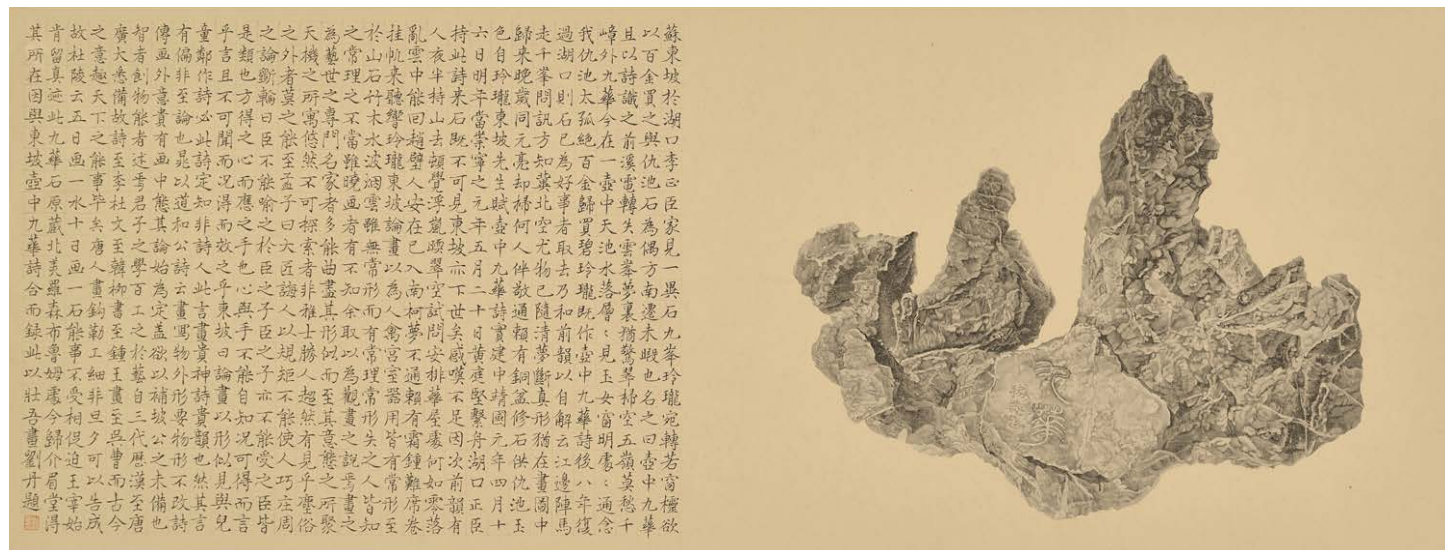 蘇東坡於湖口李正臣家見一異石九峯玲瓏宛轉若窗櫺欲
以百金買之與仇池石為偶方南遷未暇也名之曰壺中九華
且以詩識之前溪電轉失雲峯夢裏猶驚翠掃空五嶺莫愁千
嶂外九華今在一壺中天池水落層〻見玉女窗明處〻通念
我仇池太孤絕百金歸買碧玲瓏既作壺中九華詩後八年復
過湖口則石已為好事者取去乃和前韻以自解云江邊陣馬
走千峯問訊方知冀北空尤物已隨清夢斷真形猶在畫圖中
歸來晚歲同元亮却掃何人伴敬通賴有銅盆修石供仇池玉
色自玲瓏東坡先生賦壺中九華詩實建中靖國元年四月十
六日明年當崇寧之元年五月二十日黃庭堅繫舟湖口正臣
持此詩來石既不可見東坡亦下世矣感嘆不足因次前韻有
人夜半持山去頓覺浮嵐暖翠空試問安排華屋處何如零落
亂雲中能回趙璧人安在已入南柯夢不通賴有霜鐘難席卷
挂帆來聽響玲瓏東坡論畫以為人禽宮室器用皆有常形至
於山石竹木水波烟雲雖無常形而有常理常形失之人皆知
之常理之不當雖曉画者有不知余取以為觀畫之說焉畫之
為藝世之專門名家者多能曲盡其形似而至其意態之所聚
天機之所寓悠然不可探索者非雅士勝人超然有見乎塵俗
之外者莫之能至孟子曰大匠誨人以規矩不能使人巧庄周
之論斲輪曰臣不能喻之於臣之子臣之子亦不能受之臣皆
是類也方得之心而應之手也心與手不能自知況可得而言
乎言且不可聞而況得而效之乎東坡曰論畫以形似見與兒
童鄰作詩必此詩定知非詩人此言畫貴神詩貴韻也然其言
有偏非至論也晁以道和公詩云畫寫物外形要物形不改詩
傳画外意貴有画中態其論始為定盖欲以補坡公之未備也
智者創物能者述焉君子之學百工之於藝自三代歷漢至唐
廣大悉備故詩至李杜文至韓柳書至鍾王畫至吳曹而古今
之意趣天下之能事毕矣唐人畫鈎勒工細非旦夕可以告成
故杜陵云五日画一水十日画一石能事不受相促迫王宰始
肯留真迹此九華石原藏北美羅森布魯姆處今歸介眉堂得
其所在因與東坡壺中九華詩合而録此以壯吾畫劉丹題
九華